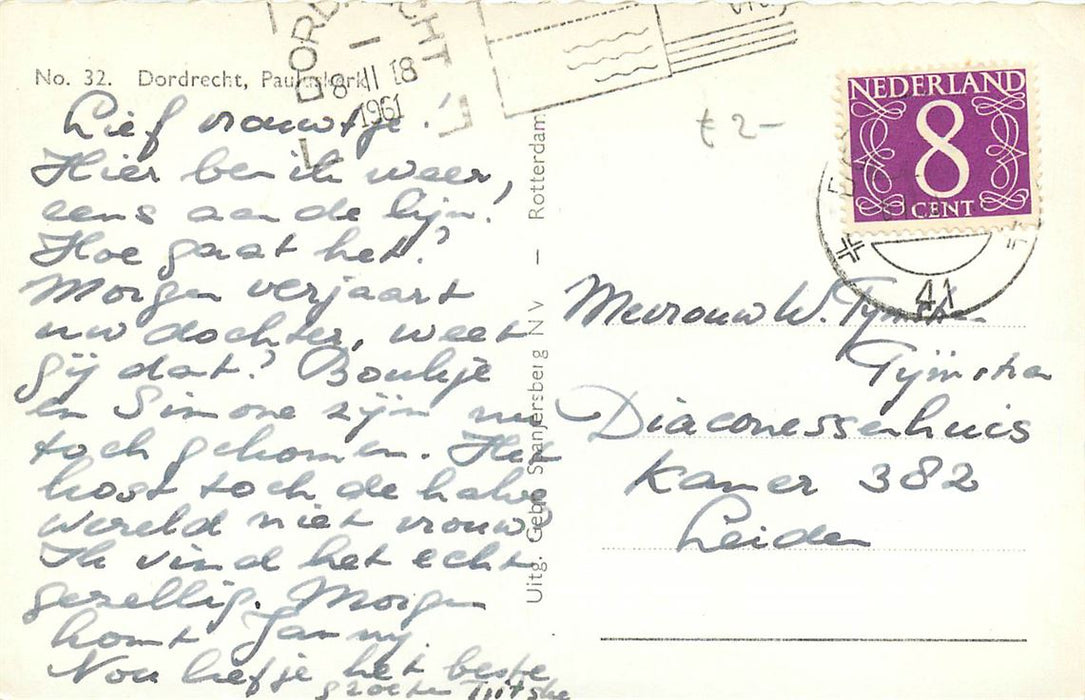 No. 32. Dordrecht, Pauluskerk
DORDRECHT
8 II 18
1961
€ 2-
NEDERLAND
8
CENT
41
Lief vrouwtje!
Hier ben ik weer,
eens aan de lijn!
Hoe gaat het?
Morgen verjaart
uw dochter, weet
gij dat? Boukje
en Simone zijn nu
toch gekomen. Het
kost toch de halve
wereld niet vrouw?
Ik vind het echt
gezellig. Morgen
komt Janny.
Nou liefje het beste
groeten Tjitske
Uitg. Gebr. Spanjersberg N V — Rotterdam
Mevrouw W.
Tijmstra
Diaconessenhuis
Kamer 382
Leiden